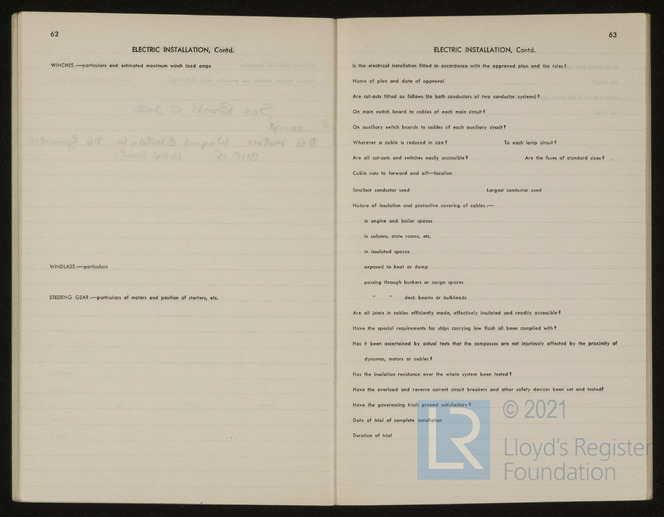 62
ELECTRIC INSTALLATION, Contd.
WINCHES :—particulars and estimated maximum winch load amps
WINDLASS :—particulars
STEERING GEAR :—particulars of motors and position of starters, etc.
63
ELECTRIC INSTALLATION, Contd.
Is the electrical installation fitted in accordance with the approved plan and the rules ?
Name of plan and date of approval
Are cut-outs fitted as follows (to both conductors of two conductor systems) ?
On main switch board to cables of each main circuit ?
On auxiliary switch boards to cables of each auxiliary circuit ?
Wherever a cable is reduced in size ? To each lamp circuit ?
Are all cut-outs and switches easily accessible ? Are the fuses of standard sizes ?
Cable runs to forward and aft—location
Smallest conductor used Largest conductor used
Nature of insulation and protective covering of cables :—
in engine and boiler spaces
in saloons, state rooms, etc.
in insulated spaces
exposed to heat or damp
passing through bunkers or cargo spaces
" " deck beams or bulkheads
Are all joints in cables efficiently made, effectively insulated and readily accessible ?
Have the special requirements for ships carrying low flash oil been complied with ?
Has it been ascertained by actual tests that the compasses are not injuriously affected by the proximity of
dynamos, motors or cables ?
Has the insulation resistance over the whole system been tested ?
Have the overload and reverse current circuit breakers and other safety devices been set and tested?
Have the governoring trials proved satisfactory ?
Date of trial of complete installation
Duration of trial
LR
© 2021
Lloyd's Register
Foundation